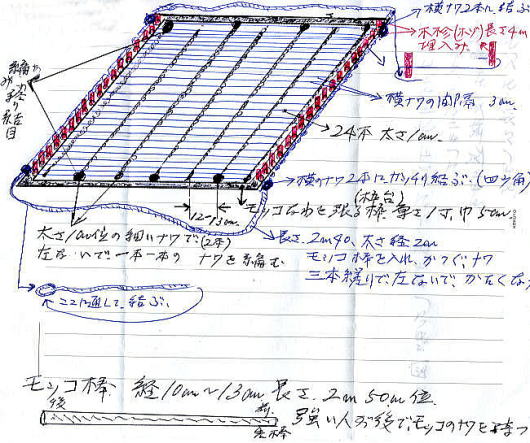 横ナワ2本に結ぶ
木杉(ホソ)長さ4m
埋入み
横ナワの間隔 3cm
24本 太さ1cm
横のナワ2本にガッチリ結ぶ(四ツ角)
(枠台)
モッコなわを張る棒 厚さ1寸、巾5cm
12~13cm
太さ1cm位の細いナワで(2本)
左ないで一本一本のナワを編む
長さ.2m40、太さ経2cm
モッコ棒を入れ、かつぐナワ
三本縒りで左ないで、かたくな
ここに通して、結ぶ。
モッコ棒 経10cm~13cm 長さ.2m50cm位
後
前
先棒
強い人が後で、モッコのナワを持つ